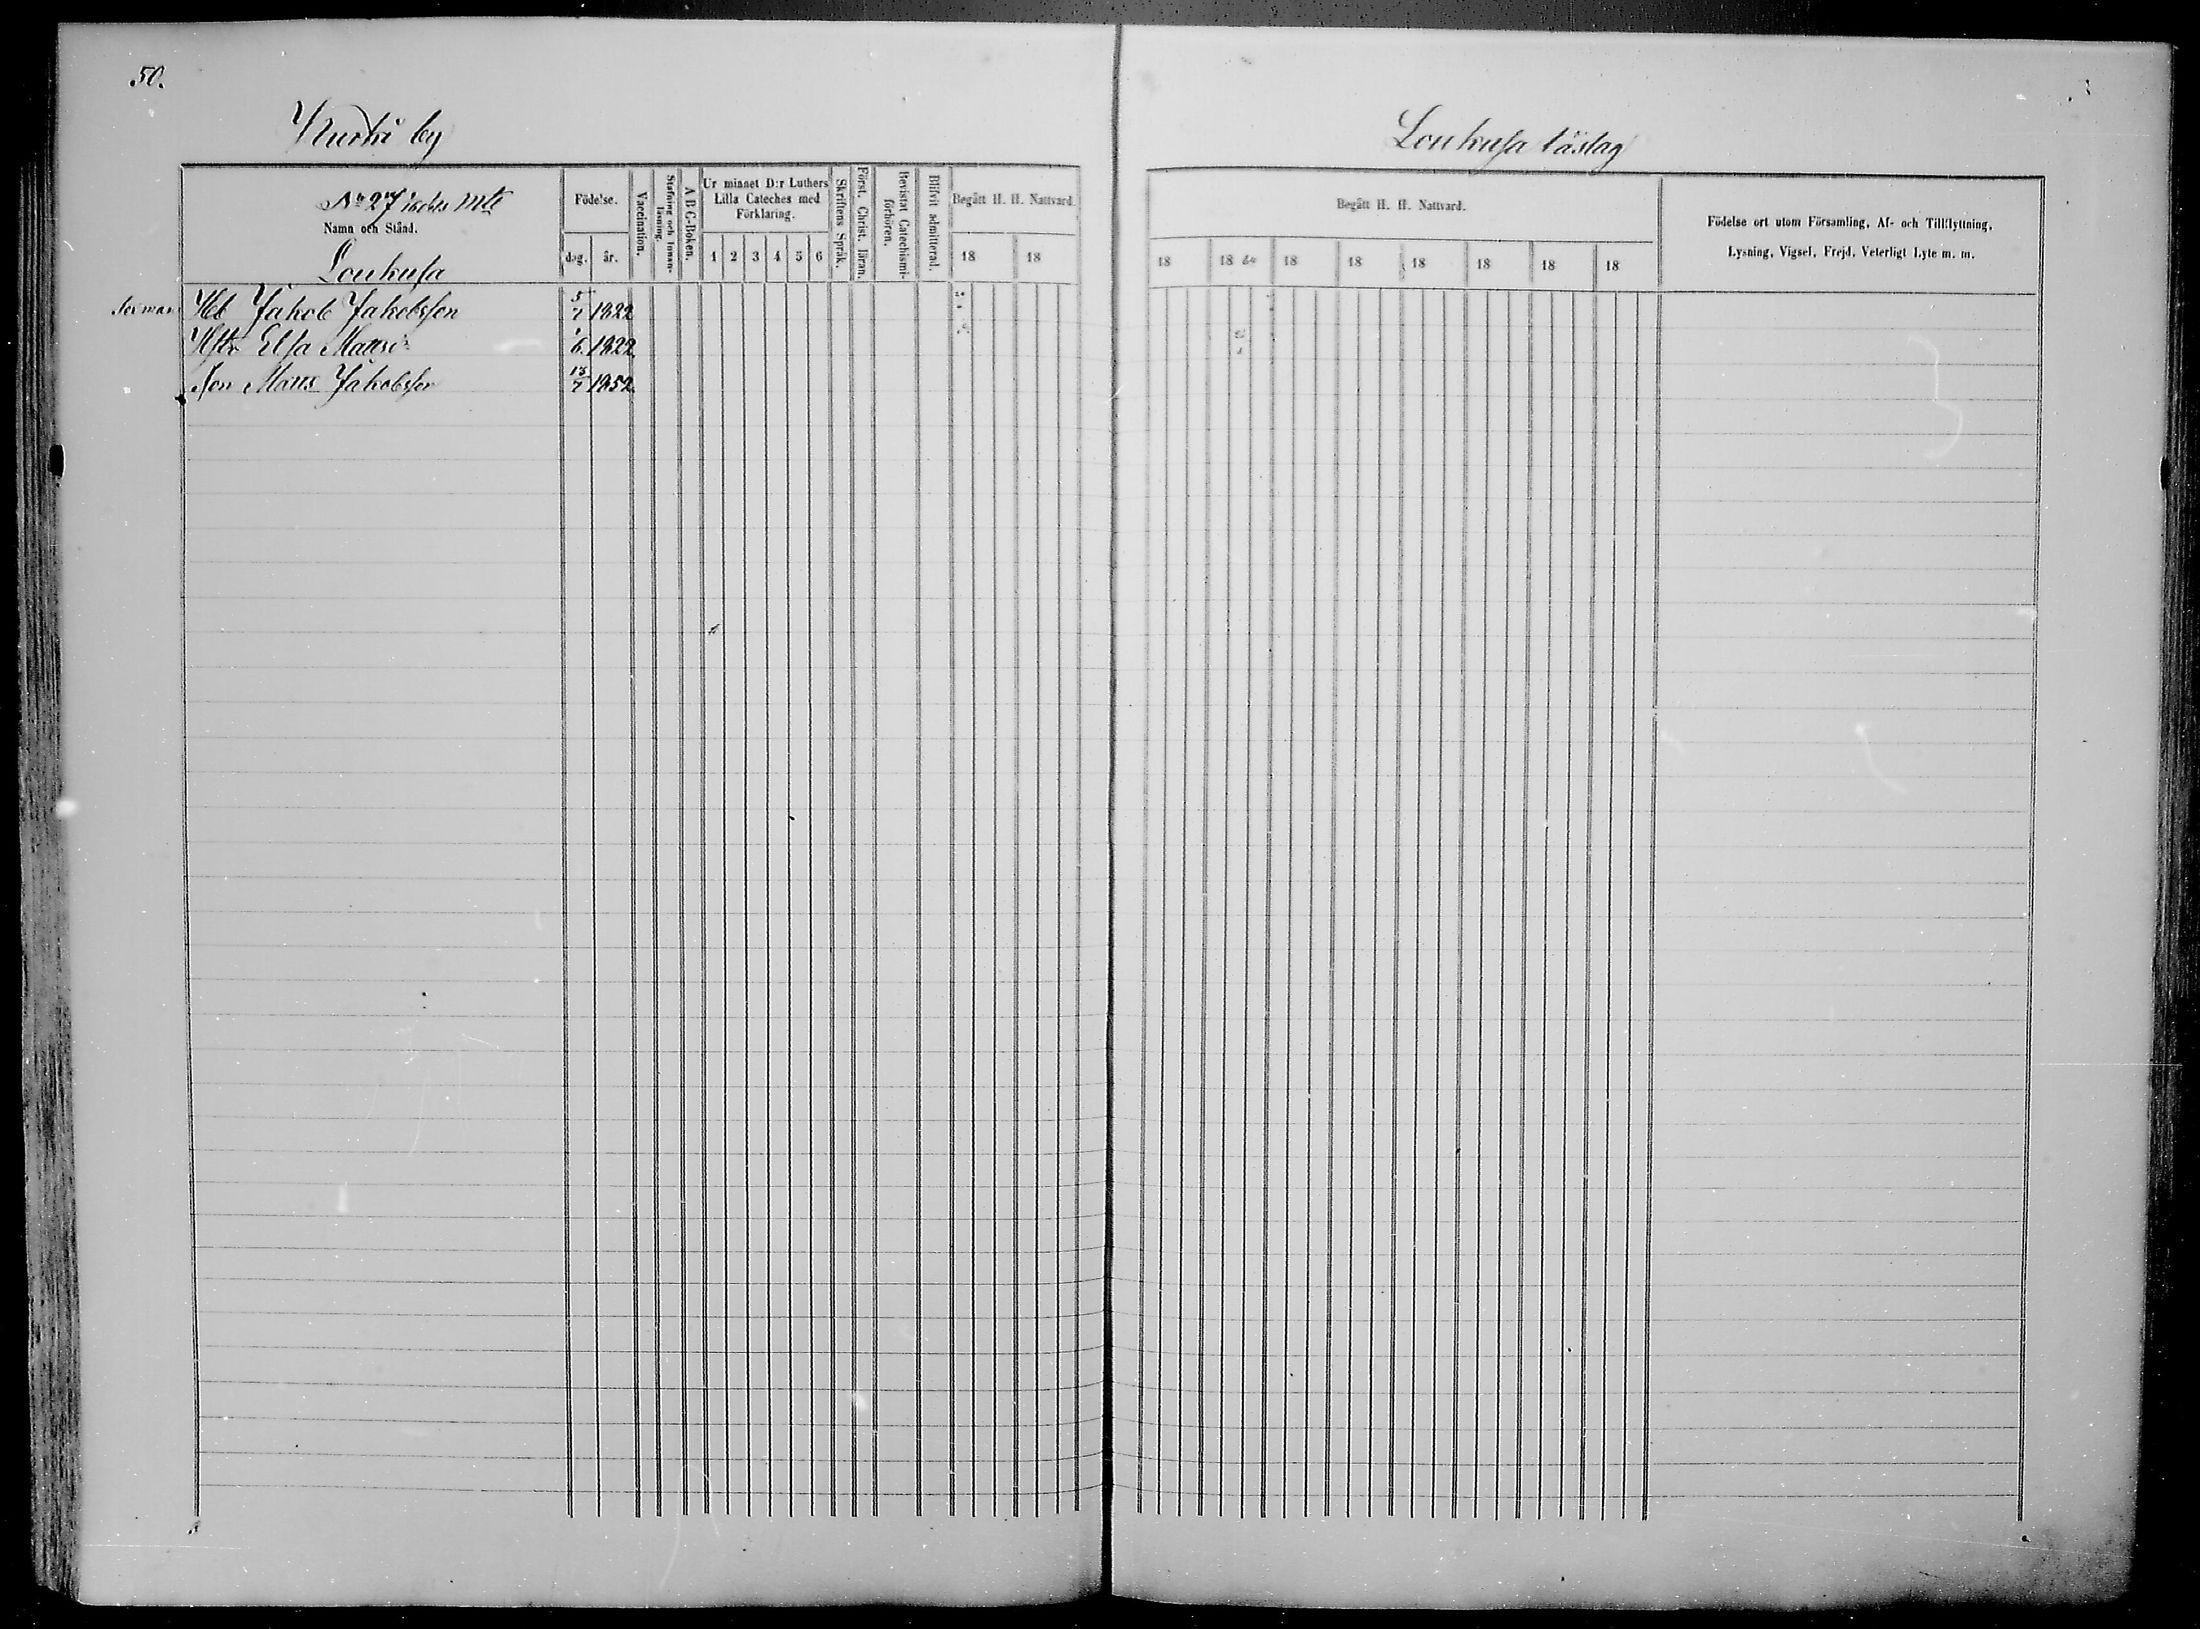 50.
Kurki by
Loukusa läslag
No 27 mtl
Namn och Stånd.
Loukusa
Födelse.
dag. år.
Vaccination.
Stafning och Innanläsning.
A B C-Boken.
Ur minnet D:r Luthers
Lilla Cateches med
Förklaring.
1 2 3 4 5 6
Skriftens Språk.
Först. Christ. läran.
Bevistat Catechismiförhören.
Blifvit admitterad.
Begått H. H. Nattvard.
18 18
Begått H. H. Nattvard.
18 18 60 18 18 18 18 18 18
Födelse ort utom Församling, Af- och Tillflyttning,
Lysning, Vigsel, Frejd, Veterligt Lyte m. m.
Sexman Hb Jakob Jakobsson 5/7 1822
Hstr Elsa Matts: 6. 1822
Son Matts Jakobsson 13/7 1852.